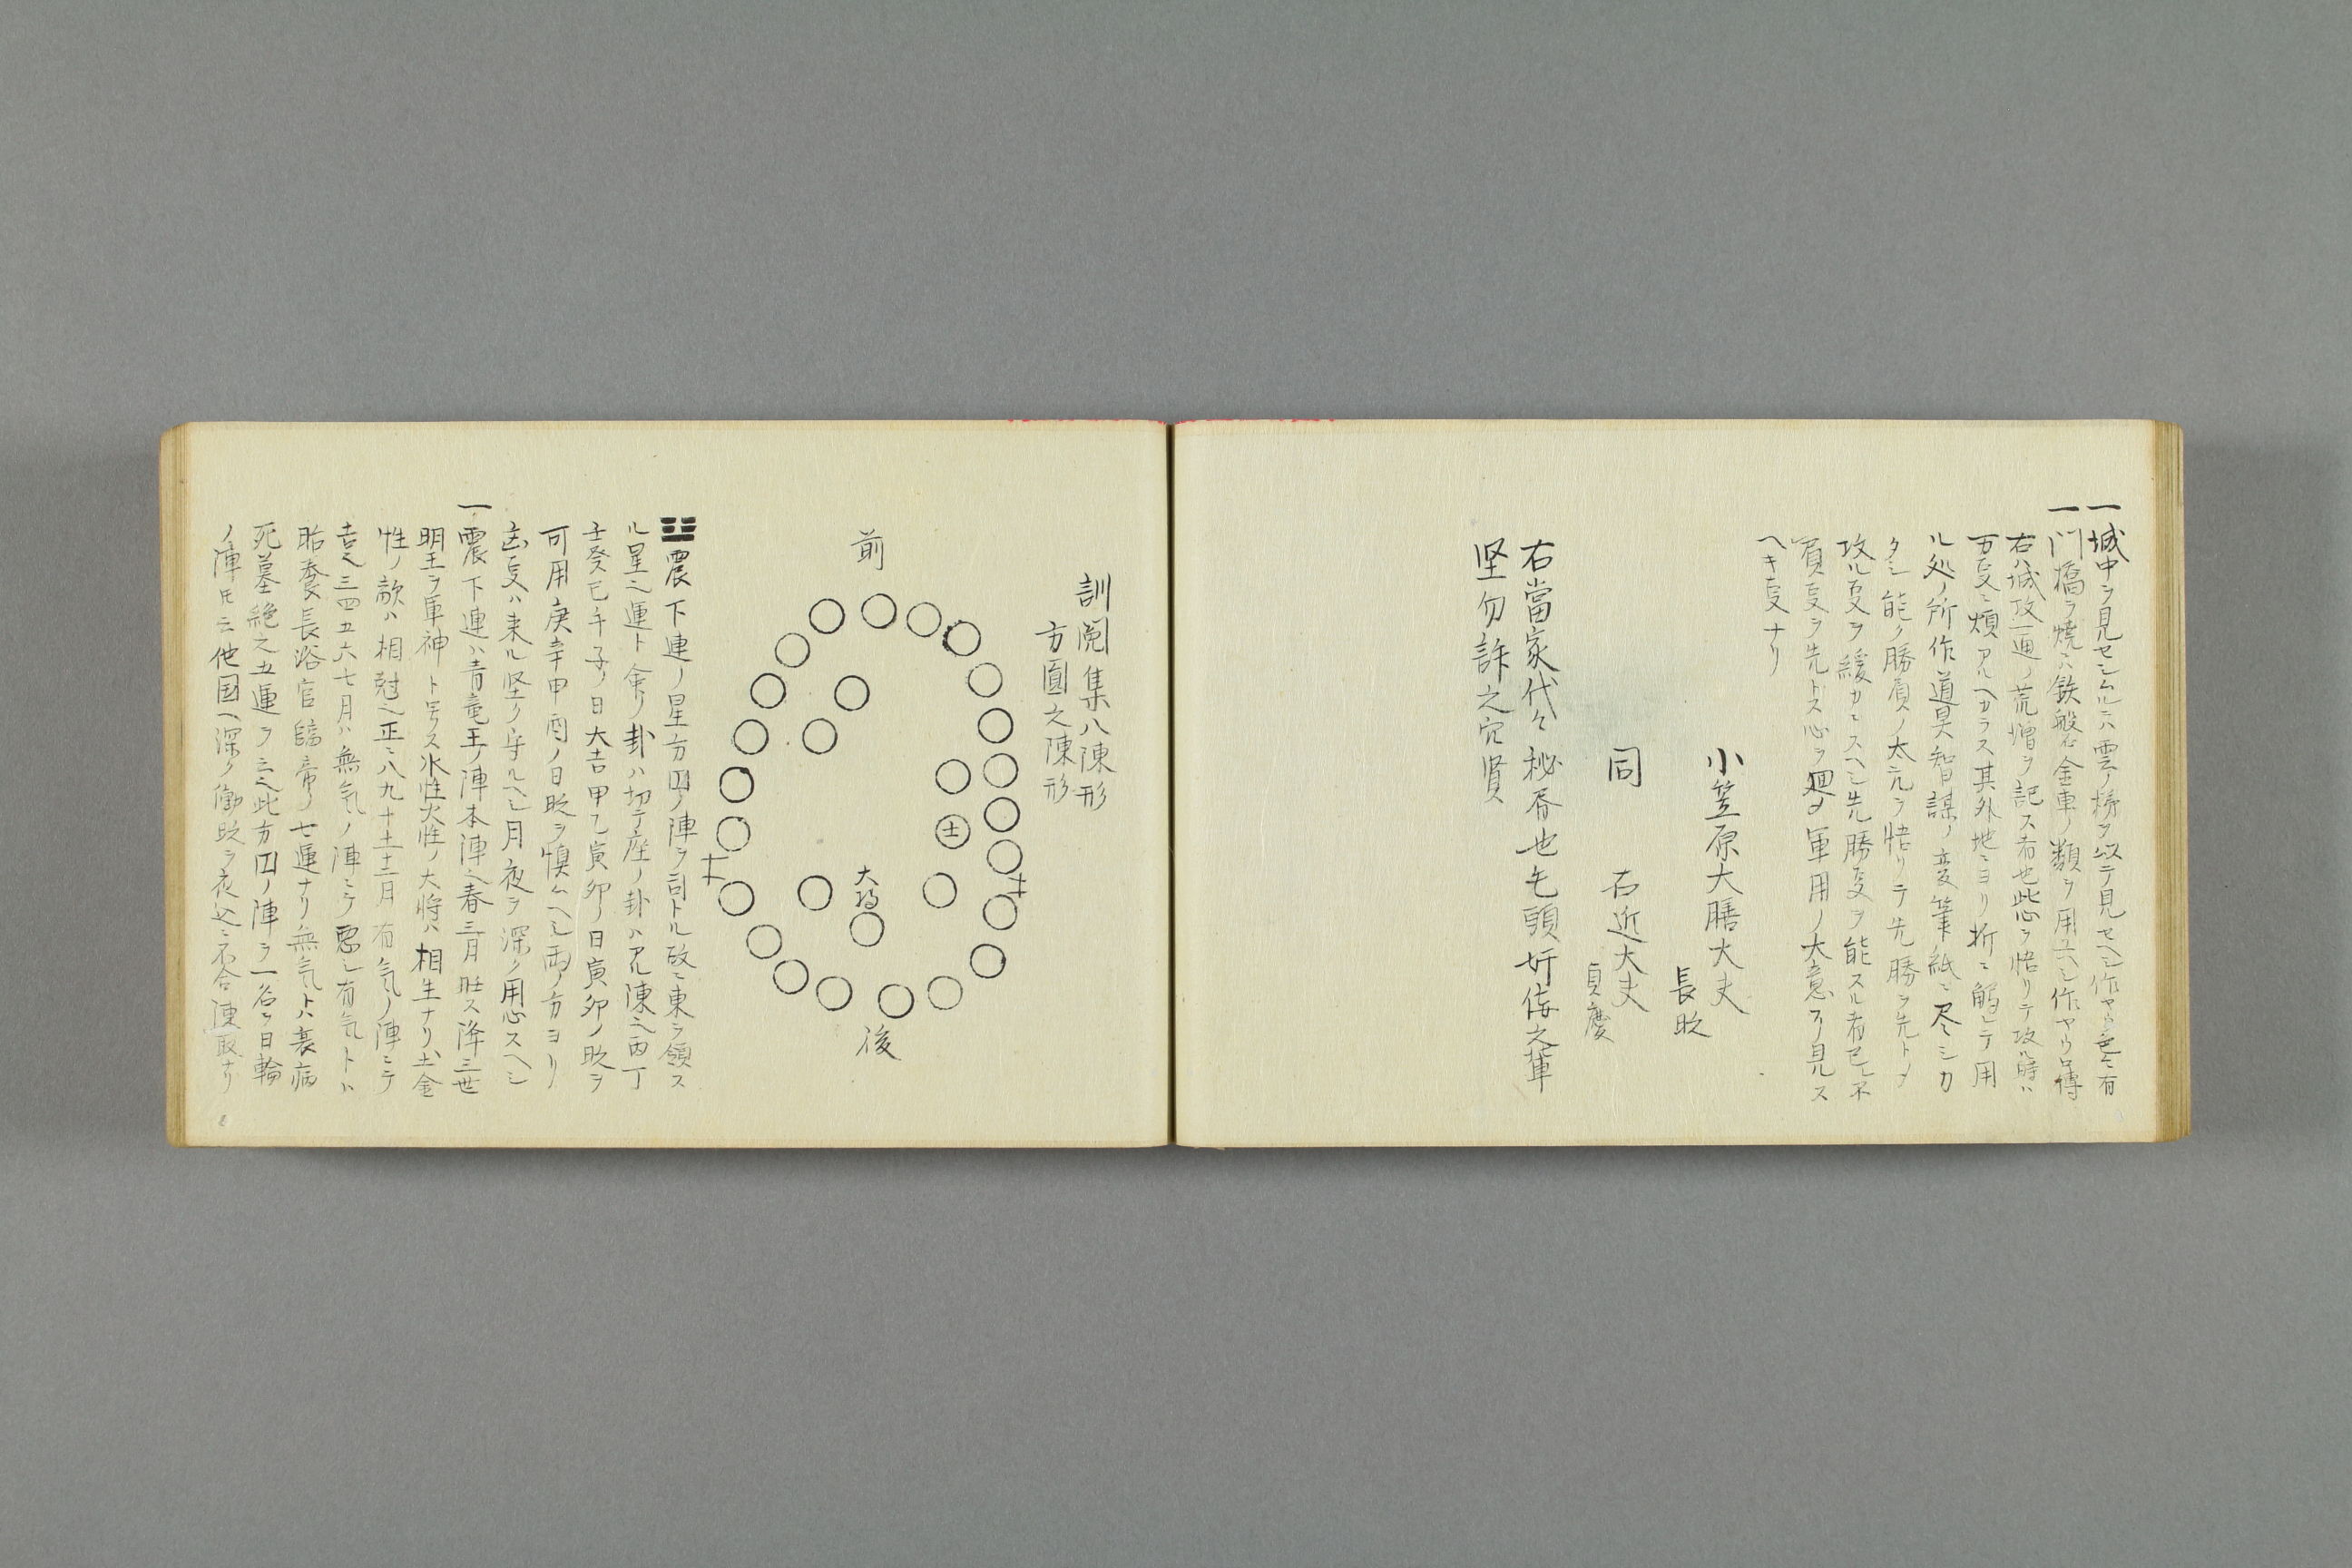 一城中ヲ見セシムルニハ雲ノ梯ヲ以テ見セヘシ作ヤウ色々有
一門橋ヲ焼ニハ鉄盤石金車ノ類ヲ用ユヘシ作ヤウ口傳
右ハ城攻一通ノ荒増ヲ記ス者也此心ヲ悟リテ攻ル時ハ
万叓ニ煩アルヘカラス其外地ニヨリ折ニ觸レテ用
ル処ノ所作道具智謀ノ変筆紙ニ尽シカ
タシ能ク勝負ノ太元ヲ悟リテ先勝ヲ先トメ
攻ル叓ヲ緩カニスヘシ先勝叓ヲ能スル者已レ不
負叓ヲ先トス心ヲ廻メ軍用ノ大意ヲ見ス
ヘキ叓ナリ
小笠原大膳大夫
長時
同
右近大夫
貞慶
右當家代々秘

也
頭奸侫之輩
堅勿訴之穴賢
訓閲集八陳形
方圓之陳形
前
士
大将
後
☳震下連ノ星方円ノ陣ヲ司トル故ニ東ヲ領ス
ル星之運ト
卦ハ切テ座ノ卦ハ
陳之丙丁
壬癸巳午子ノ日大吉甲乙寅卯ノ日寅卯ノ時ヲ
可用庚辛申酉ノ日時ヲ慎ムヘシ
ノ方ヨリ
凶叓ハ来ル堅ク守ルヘシ月夜ヲ深ク用心スヘシ
一震下連ハ青竜王ノ陣本陣也春三月旺ス降三世
明王ヲ軍神ト号ス水性火性ノ大将ハ相生ナリ土金
性ノ敵ハ相尅也正二八九十十一十二月有気ノ陣ニテ
吉也三四五六七月ハ無気ノ陣ニテ悪シ有気トハ
胎養長浴官臨帝ノ七運ナリ無気トハ衰病
死墓絶之五運ヲ云也此方円ノ陣ヲ一名ヲ日輪
ノ陣トモ云他国ヘ深ク働時ヲ夜込ニ不合陳取ナリ